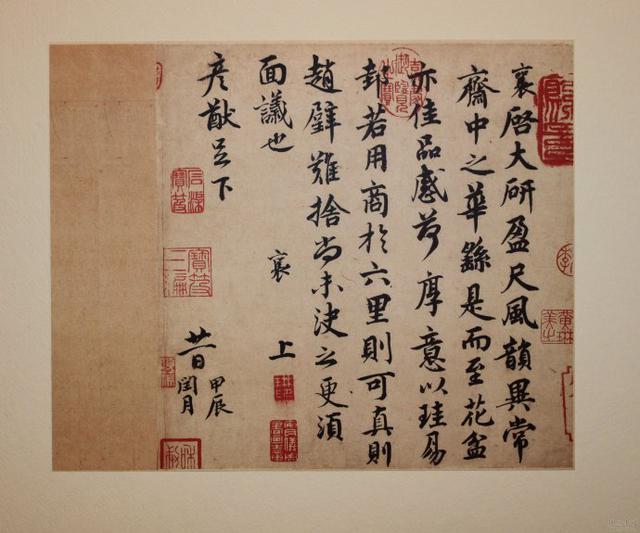 襄啓大研盈尺風韻異常
齋中之華繇是而至花盆
亦佳品感荷厚意以珪易
邽若用商於六里則可真則
趙璧難捨尚未決之更須
面議也
襄
上
彦猷足下
廿一日
甲辰
閏月